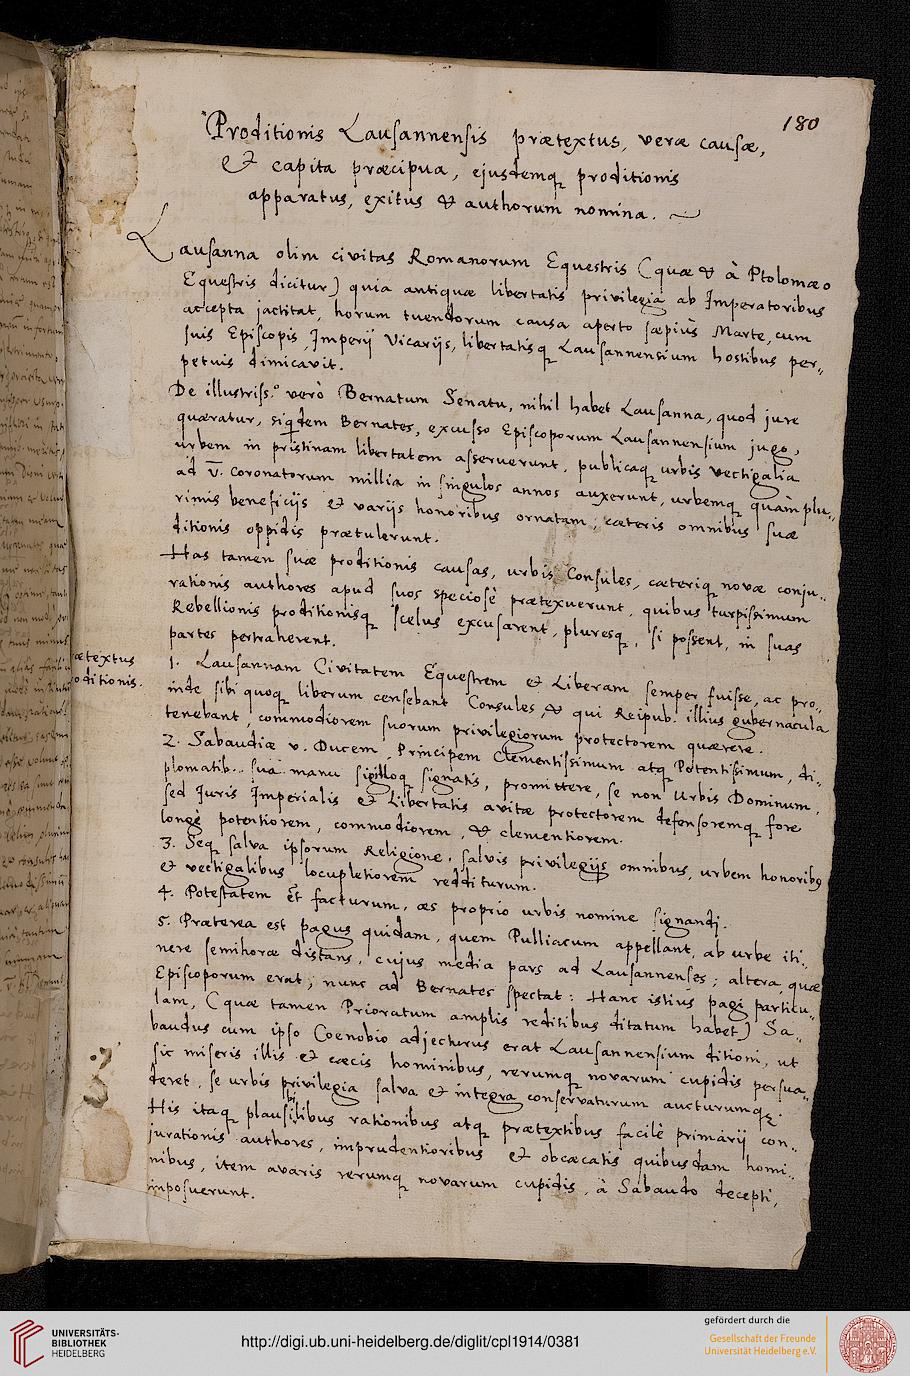 180
Proditionis Lausannensis prætextus, veræ causæ,
et capita præcipua, ejusdemq proditionis
apparatus, exitus & authorum nomina.
Lausanna olim civitas Romanorum Equestris (quæ & à Ptolomæo
Equestris dicitur) quia antiquæ libertatis privilegia ab Imperatoribus
accepta jactitat, horum tuendorum causa aperto sæpiùs Marte, cum
suis Episcopis, Imperij Vicarijs, libertatisq Lausannensium hostibus per„
petuis dimicavit.
De illustriss.º verò Bernatum Senatu, nihil habet Lausanna, quod jure
quæratur, siqdem Bernates, excusso Episcoporum Lausannensium jugo,
urbem in pristinam libertatem asseruerunt, publicaq urbis vectigalia
ad v̄. coronatorum millia in singulos annos auxerunt, urbemq quàm plu„
rimis beneficijs et varijs honoribus ornatam, cæteris omnibus suæ
ditionis oppidis prætulerunt.
Has tamen suæ proditionis causas, urbis Consules, cæteriq novæ conju„
rationis authores apud suos speciosè prætexuerunt, quibus turpissimum
Rebellionis proditionisq scelus excusarent, pluresq, si possent, in suas
partes pertraherent.
ætextus
oditionis.
1. Lausannam Civitatem Equestrem et Liberam semper fuisse, ac pro„
inde sibi quoq liberum censebant Consules, & qui Reipub. illius gubernacula
tenebant, commodiorem suorum privilegiorum protectorem quærere.
2. Sabaudiæ v. Ducem, Principem Clementissimum atq Potentissimum, di„
plomatib. suâ manu sigilloq signatis, promittere, se non Urbis Dominum,
sed Juris Imperialis et Libertatis avitæ protectorem defensoremq fore
longè potentiorem, commodiorem, & clementiorem.
3. Seq salva ipsorum Religione, salvis privilegijs omnibus, urbem honoribq
et vectigalibus locupletiorem redditurum.
4. Potestatem et facturum, æs proprio urbis nomine signandj.
5. Præterea est pagus quidam, quem Pulliacum appellant, ab urbe iti„
nere semihoræ distans, cujus media pars ad Lausannenses; altera, quæ
Episcoporum erat, nunc ad Bernates spectat: Hanc istius pagi particu„
lam, (quæ tamen Prioratum amplis reditibus ditatum habet) Sa„
baudus cum ipso Coenobio adjecturus erat Lausannensium ditioni, ut
sic miseris illis et cæcis hominibus, rerumq novarum cupidis persua„
deret, se urbis privilegia salva et integra conservaturum aucturumq.
His itaq plausibilibus rationibus atq prætextibus facilè primarij con„
jurationis authores, imprudentioribus et obcæcatis quibusdam homi„
nibus, item avaris rerumq novarum cupidis, à Sabaudo decepti,
imposuerunt.
UNIVERSITÄTS-
BIBLIOTHEK
HEIDELBERG
http://digi.ub.uni-heidelberg.de/diglit/cpl1914/0381
gefördert durch die
Gesellschaft der Freunde
Universität Heidelberg e.V.